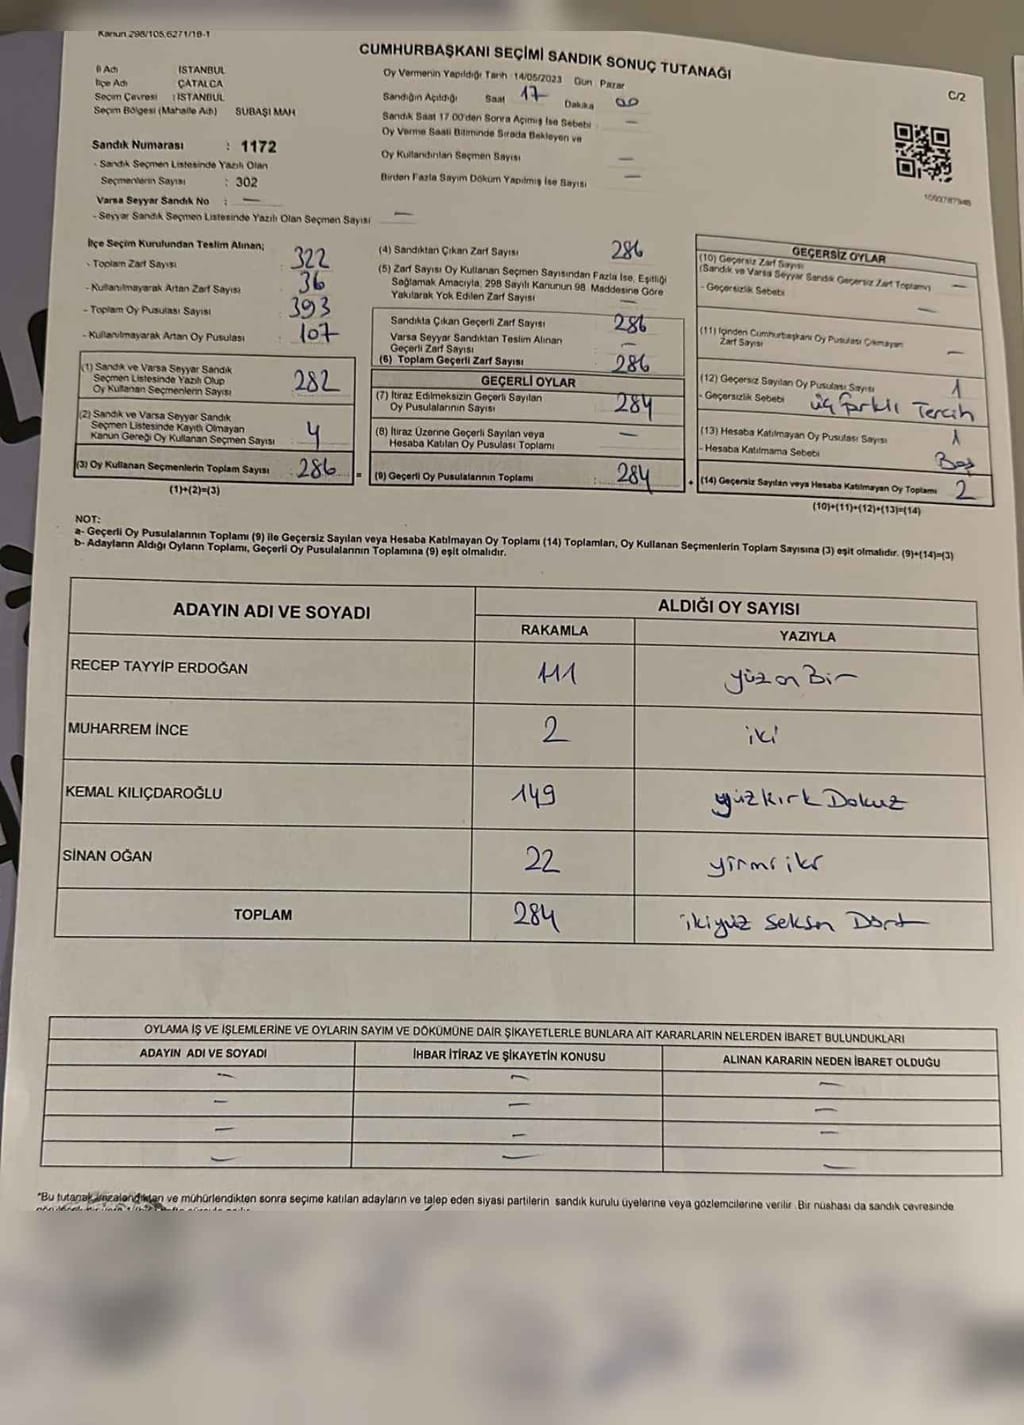 Kanun 298/105,6271/18-1
CUMHURBAŞKANI SEÇİMİ SANDIK SONUÇ TUTANAĞI
C/2
İl Adı İSTANBUL
İlçe Adı ÇATALCA
Seçim Çevresi : İSTANBUL
Seçim Bölgesi (Mahalle Adı) SUBAŞI MAH
Sandık Numarası : 1172
- Sandık Seçmen Listesinde Yazılı Olan
Seçmenlerin Sayısı : 302
Varsa Seyyar Sandık No : —
- Seyyar Sandık Seçmen Listesinde Yazılı Olan Seçmen Sayısı —
Oy Vermenin Yapıldığı Tarih : 14/05/2023 Gün : Pazar
Sandığın Açıldığı Saat 17 Dakika 00
Sandık Saat 17 00'den Sonra Açılmış İse Sebebi : —
Oy Verme Saati Bitiminde Sırada Bekleyen ve
Oy Kullandırılan Seçmen Sayısı —
Birden Fazla Sayım Döküm Yapılmış İse Sayısı —
İlçe Seçim Kurulundan Teslim Alınan;
- Toplam Zarf Sayısı : 322
- Kullanılmayarak Artan Zarf Sayısı : 36
- Toplam Oy Pusulası Sayısı : 393
- Kullanılmayarak Artan Oy Pusulası : 107
(1) Sandık ve Varsa Seyyar Sandık
Seçmen Listesinde Yazılı Olup
Oy Kullanan Seçmenlerin Sayısı 282
(2) Sandık ve Varsa Seyyar Sandık
Seçmen Listesinde Kayıtlı Olmayan
Kanun Gereği Oy Kullanan Seçmen Sayısı 4
(3) Oy Kullanan Seçmenlerin Toplam Sayısı : 286
(1)+(2)=(3)
(4) Sandıktan Çıkan Zarf Sayısı 286
(5) Zarf Sayısı Oy Kullanan Seçmen Sayısından Fazla İse, Eşitliği
Sağlamak Amacıyla, 298 Sayılı Kanunun 98. Maddesine Göre
Yakılarak Yok Edilen Zarf Sayısı —
Sandıkta Çıkan Geçerli Zarf Sayısı 286
Varsa Seyyar Sandıktan Teslim Alınan
Geçerli Zarf Sayısı : —
(6) Toplam Geçerli Zarf Sayısı : 286
GEÇERLİ OYLAR
(7) İtiraz Edilmeksizin Geçerli Sayılan
Oy Pusulalarının Sayısı 284
(8) İtiraz Üzerine Geçerli Sayılan veya
Hesaba Katılan Oy Pusulası Toplamı —
= (9) Geçerli Oy Pusulalarının Toplamı : 284
GEÇERSİZ OYLAR
(10) Geçersiz Zarf Sayısı
(Sandık ve Varsa Seyyar Sandık Geçersiz Zarf Toplamı) —
- Geçersizlik Sebebi —
(11) İçinden Cumhurbaşkanı Oy Pusulası Çıkmayan
Zarf Sayısı —
(12) Geçersiz Sayılan Oy Pusulası Sayısı 1
- Geçersizlik Sebebi üç farklı Tercih
(13) Hesaba Katılmayan Oy Pusulası Sayısı 1
- Hesaba Katılmama Sebebi Boş
+ (14) Geçersiz Sayılan veya Hesaba Katılmayan Oy Toplamı 2
(10)+(11)+(12)+(13)=(14)
NOT:
a- Geçerli Oy Pusulalarının Toplamı (9) ile Geçersiz Sayılan veya Hesaba Katılmayan Oy Toplamı (14) Toplamları, Oy Kullanan Seçmenlerin Toplam Sayısına (3) eşit olmalıdır. (9)+(14)=(3)
b- Adayların Aldığı Oyların Toplamı, Geçerli Oy Pusulalarının Toplamına (9) eşit olmalıdır.
ADAYIN ADI VE SOYADI ALDIĞI OY SAYISI
RAKAMLA YAZIYLA
RECEP TAYYİP ERDOĞAN 111 yüz on Bir
MUHARREM İNCE 2 iki
KEMAL KILIÇDAROĞLU 149 yüzkırk Dokuz
SİNAN OĞAN 22 yirmi iki
TOPLAM 284 ikiyüz seksen Dört
OYLAMA İŞ VE İŞLEMLERİNE VE OYLARIN SAYIM VE DÖKÜMÜNE DAİR ŞİKAYETLERLE BUNLARA AİT KARARLARIN NELERDEN İBARET BULUNDUKLARI
ADAYIN ADI VE SOYADI İHBAR İTİRAZ VE ŞİKAYETİN KONUSU ALINAN KARARIN NEDEN İBARET OLDUĞU
— — —
— — —
— — —
— — —
*Bu tutanak imzalandıktan ve mühürlendikten sonra seçime katılan adayların ve talep eden siyasi partilerin sandık kurulu üyelerine veya gözlemcilerine verilir. Bir nüshası da sandık çevresinde